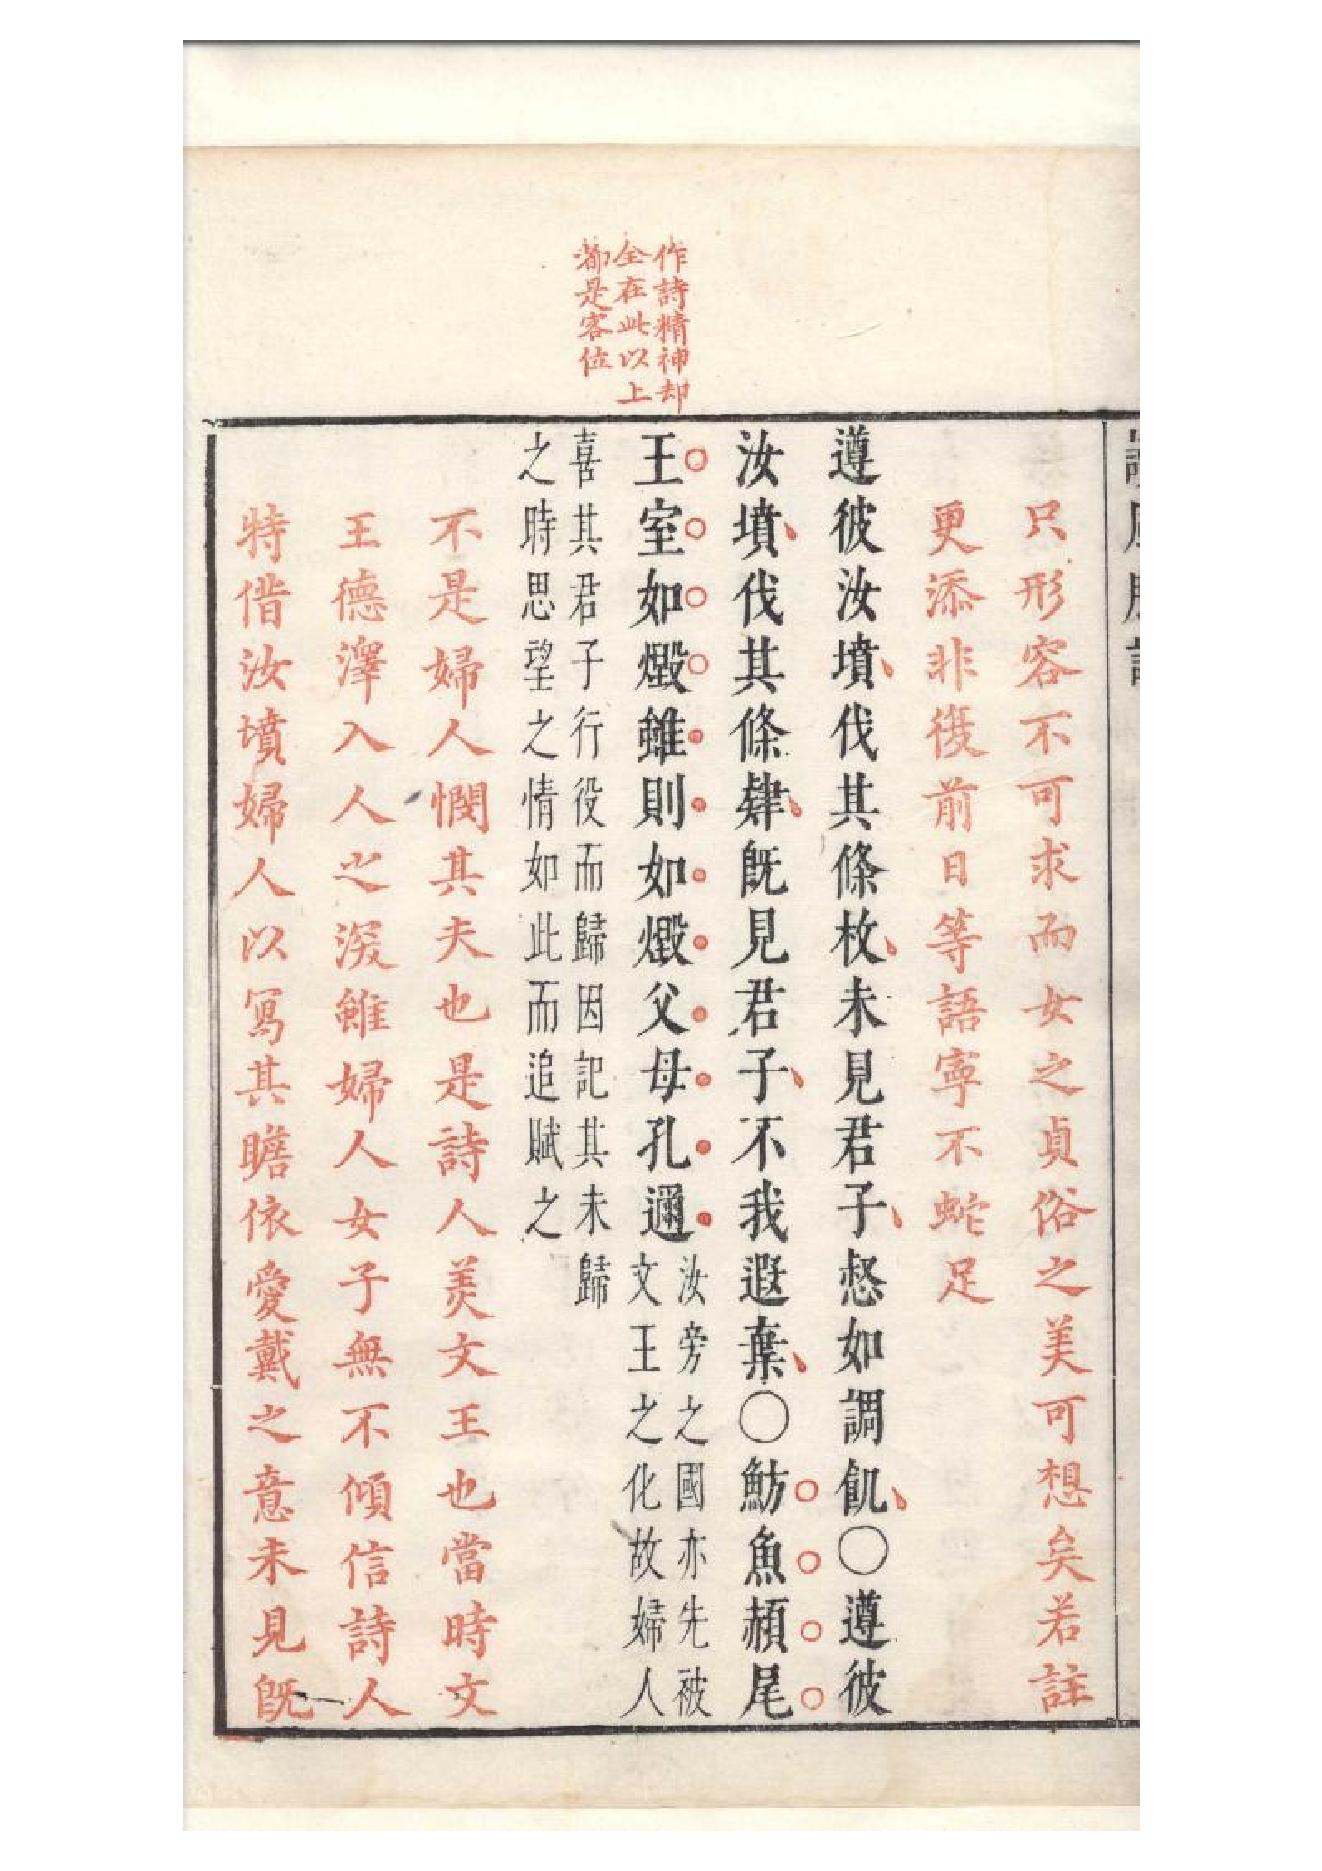 作詩精神却
全在此以上
都是客位
只形容不可求而女之貞俗之美可想矣若註
更添非復前日等語寧不蛇足
遵彼汝墳伐其條枚未見君子惄如調飢〇遵彼
汝墳伐其條肄旣見君子不我遐棄〇魴魚赬尾
王室如燬雖則如燬父母孔邇
汝旁之國亦先被
文王之化故婦人
喜其君子行役而歸因記其未歸
之時思望之情如此而追賦之
不是婦人憫其夫也是詩人美文王也當時文
王德澤入人之深雖婦人女子無不傾信詩人
特借汝墳婦人以寫其瞻依愛戴之意未見旣